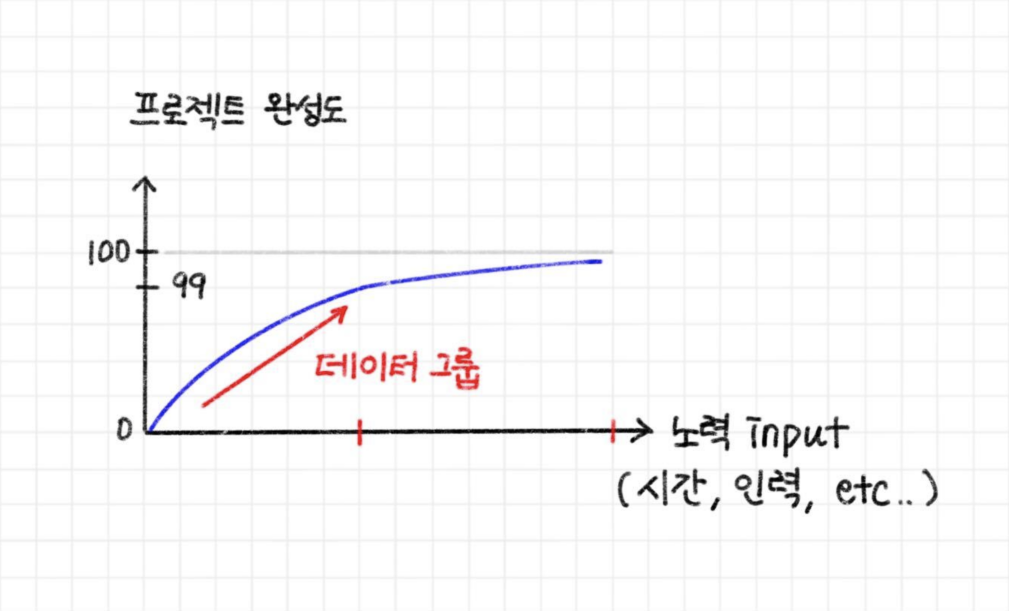 프로젝트 완성도
100
99
데이터 그룹
0
노력 input
(시간, 인력, etc..)